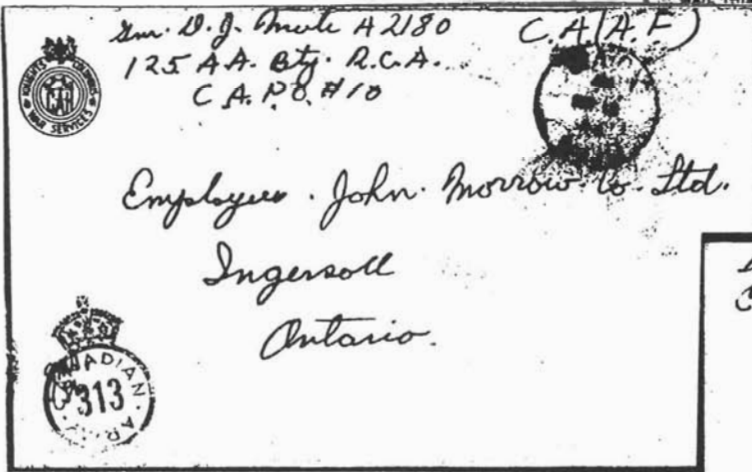 Gnr. D.J. Mute A2180
C.A.(A.F)
125 A.A. Bty. R.C.A.
C.A.P.O. #10
KNIGHTS COLUMBUS
CAH
WAR SERVICES
Employees. John Morrow Co. Ltd.
Ingersoll
Ontario.
CANADIAN ARMY
313